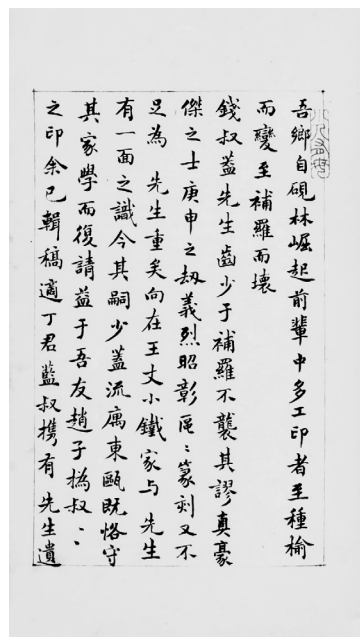 吾鄉自硯林崛起前輩中多工印者至種榆
而變至補羅而壞
錢叔蓋先生齒少于補羅不襲其謬真豪
傑之士庚申之劫義烈昭彰區〻篆刻又不
足為　先生重矣向在王丈小鐵家与　先生
有一面之識今其嗣少蓋流寓東甌既恪守
其家學而復請益于吾友趙子撝叔〻〻
之印余已輯稿適丁君藍叔攜有先生遺